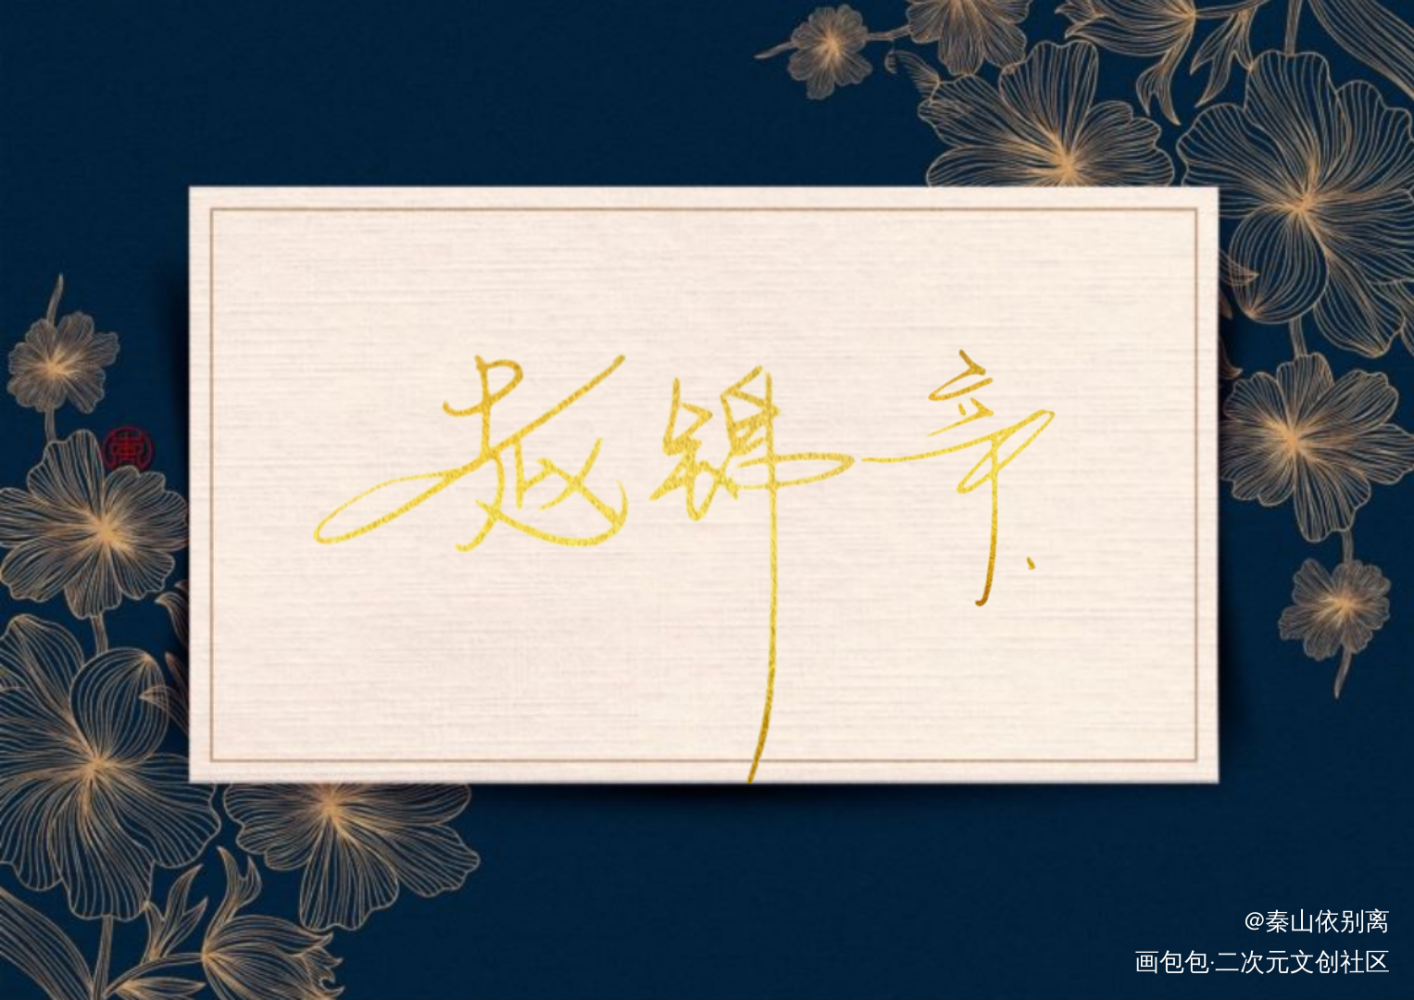 赵锦章
@秦山依别离
画包包·二次元文创社区